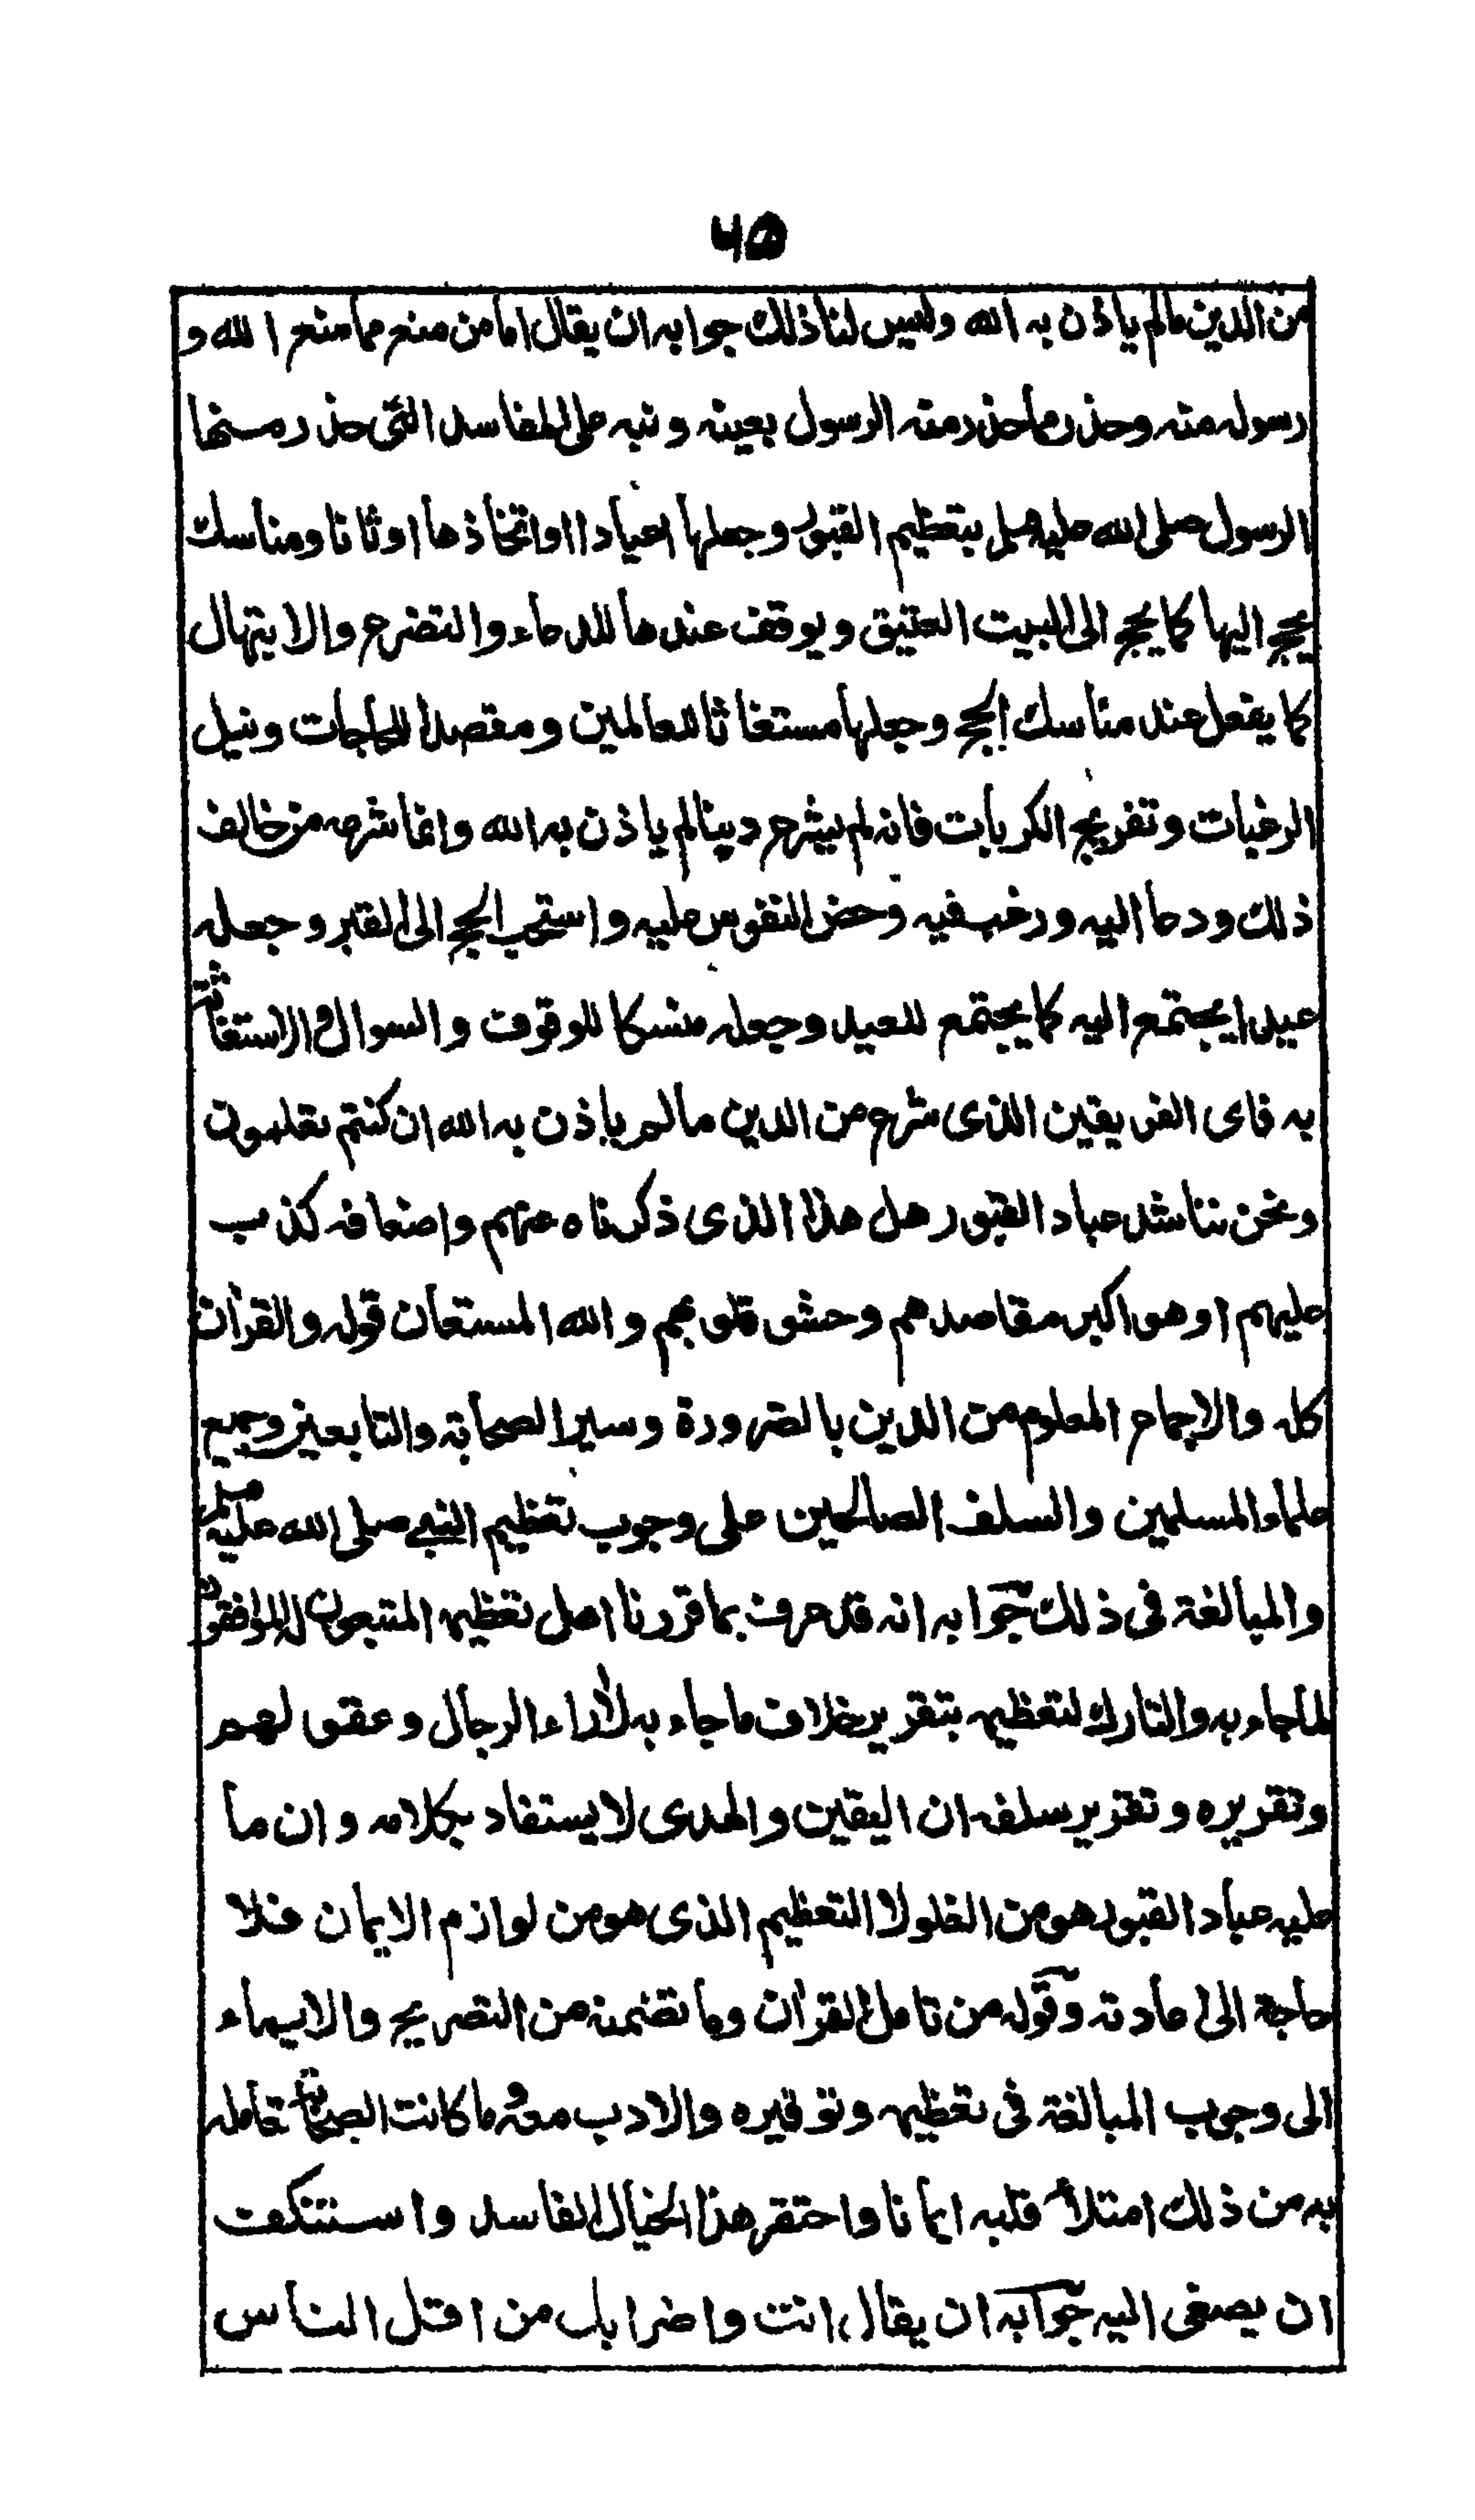 ٧٥
من الدين مالم ياذن به الله وليس لنا ذلك جوابه ان يقال اما من منع مما منع الله و
رسوله منه وحذر مما حذر منه الرسول بعينه ونبه على المفاسد التى حذر منها
الرسول صلى الله عليه وسلم بتعظيم القبور وجعلها اعيادا او اتخاذها اوثانا ومناسك
يحج اليها كما يحج الى البيت العتيق ويوقف عندها للدعاء والتضرع والابتهال
كما يفعل عند مناسك الحج وجعلها مستغاثا للعالمين ومقصدا للحاجات ونيل
الرغبات وتفريج الكربات فانه لم يشرع دينا لم ياذن به الله وانما شرعه من خالف
ذلك ودعا اليه ورغب فيه وحض النفوس عليه واستحب الحج الى القبر وجعله
عيدا يجتمع اليه كما يجتمع للعيد وجعله منسكا للوقوف والسوال والاستغاثة
به فاى الفريقين الذى شرع من الدين مالم ياذن به الله ان كنتم تعلمون
ونحن نناشد عباد القبور هل هذا الذى ذكرناه عنهم واضعافه كذب
عليهم او هو اكبر مقاصدهم وحشو قلوبهم والله المستعان قوله والقران
كله والاجماع المعلوم من الدين بالضرورة وسير الصحابة والتابعين وجميع
علماء المسلمين والسلف الصالحين على وجوب تعظيم النبى صلى الله عليه وسلم
والمبالغة فى ذلك جوابه انه قد عرف بما قررنا اهل تعظيمه المتبعون له الموافقون
لما جاء به والتارك لتعظيمه بتقرير خلاف ما جاء به لاراء الرجال وعقولهم
وتقريره وتقرير سلفه ان اليقين والهدى لا يستفاد بكلامه وان ما
عليه عباد القبور هو من الغلو لا التعظيم الذى هو من لوازم الايمان فلا
حاجة الى عادته وقوله من تامل القران وما تضمنه من التصريح والايماء
الى وجوب المبالغة فى تعظيمه وتوقيره والادب معه وما كانت الصحابة تعامله
به من ذلك امتلأ قلبه ايمانا واحتقر هذا الخيال الفاسد واستنكف
ان يصغى اليه جوابه ان يقال انت واضرابك من اقل الناس